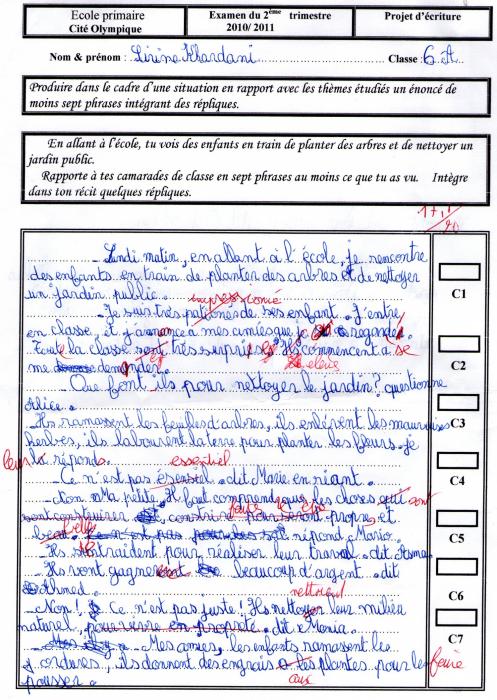 Ecole primaire
Cité Olympique
Examen du 2ème trimestre
2010/ 2011
Projet d'écriture
Nom & prénom : Lirine Khardani Classe : 6 A
Produire dans le cadre d'une situation en rapport avec les thèmes étudiés un énoncé de
moins sept phrases intégrant des répliques.
En allant à l'école, tu vois des enfants en train de planter des arbres et de nettoyer un
jardin public.
Rapporte à tes camarades de classe en sept phrases au moins ce que tu as vu. Intègre
dans ton récit quelques répliques.
17,5
20
Lundi matin, en allant à l'école, je rencontre
des enfants en train de planter des arbres et de nettoyer
un jardin public.
impressionné
Je suis très de ses enfant. J'entre
en classe, et j'annonce a mes amies que je regarde
Toute la classe sont très surpris. Ils commencent a se
me demander.
eleve
Que font ils pour nettoyer le jardin? questionne
Alice.
Ils ramassent les feuilles d'arbres, ils enlèvent les mauvaises
herbes, ils labourent la terre pour planter les fleurs. je
leur réponds.
essentiel
Ce n'est pas dit Marie en riant.
Non Ma petite. Il faut comprendre que les choses qui sont
propre, et
belle répond Mario.
Ils s'entraident pour réaliser leur travail. dit
Ils vont gagner beaucoup d'argent. dit
Ahmed.
nettoient
Non! Ce n'est pas juste! Ils nettoyer leur milieu
naturel, pour vivre en propreté. dit Monia.
Mes amies, les enfants ramassent les
ordures, ils donnent des engrais a les plantes pour les faire
aux
pousser.
C1
C2
C3
C4
C5
C6
C7